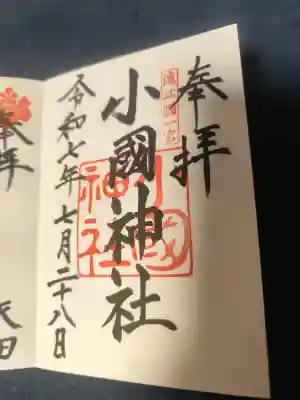 奉拝
遠江國一宮
小國神社
小國神社
令和七年七月二十八日
奉拝
天田